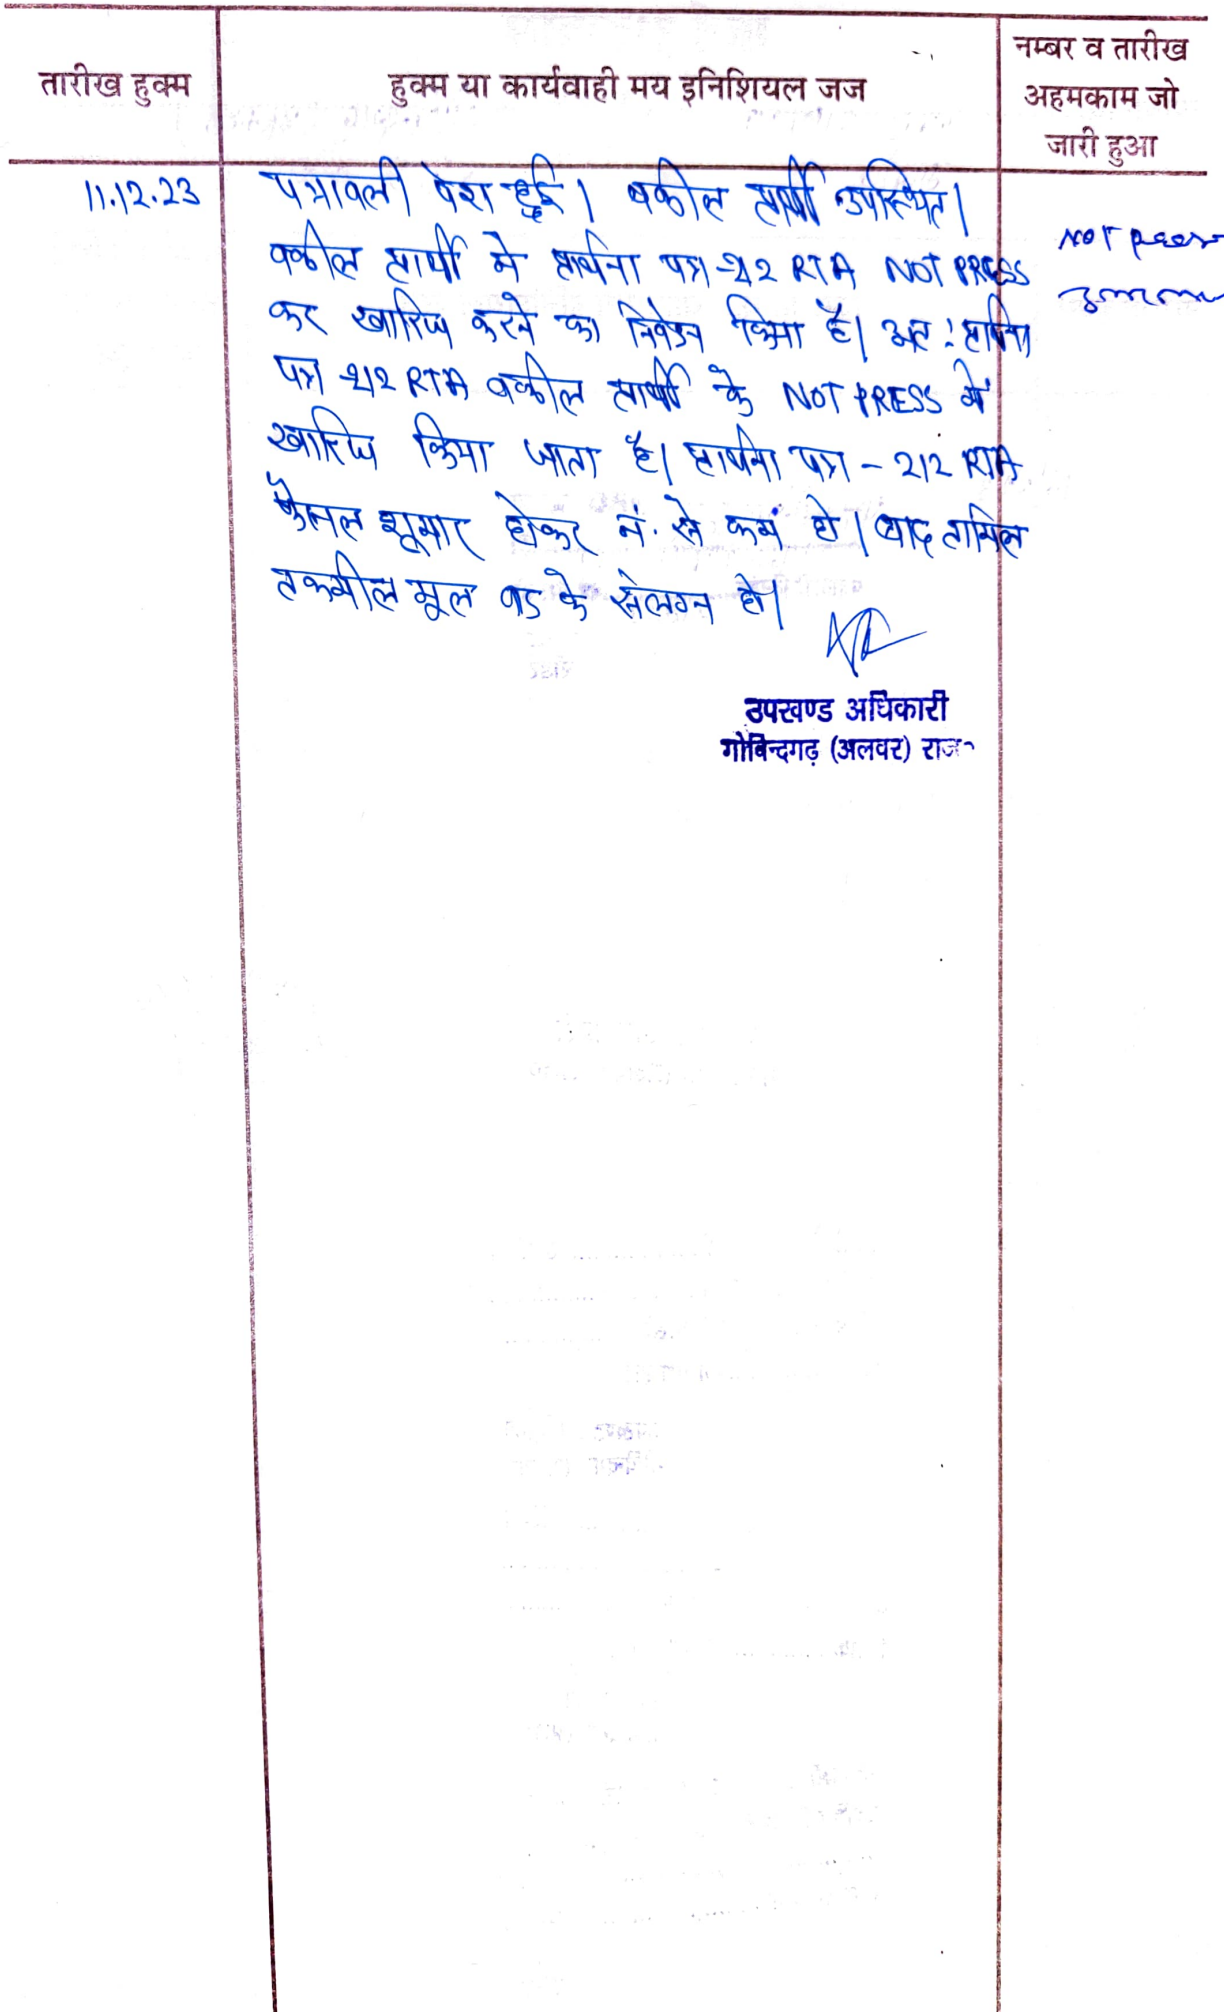 तारीख हुक्म
हुक्म या कार्यवाही मय इनिशियल जज
नम्बर व तारीख
अहमकाम जो
जारी हुआ
11.12.23
पत्रावली पेश हुई। वकील प्रार्थी उपस्थित।
वकील प्रार्थी ने प्रार्थना पत्र-212 RTA NOT PRESS
कर खारिज करने का निवेदन किया है। अतः प्रार्थना
पत्र 212 RTA वकील प्रार्थी के NOT PRESS में
खारिज किया जाता है। प्रार्थना पत्र - 212 RTA
फैसल शुमार होकर नं. से कम हो। बाद तामिल
तकमील मूल वाद के संलग्न हो।
NOT press
उपखण्ड अधिकारी
गोविन्दगढ़ (अलवर) राज०